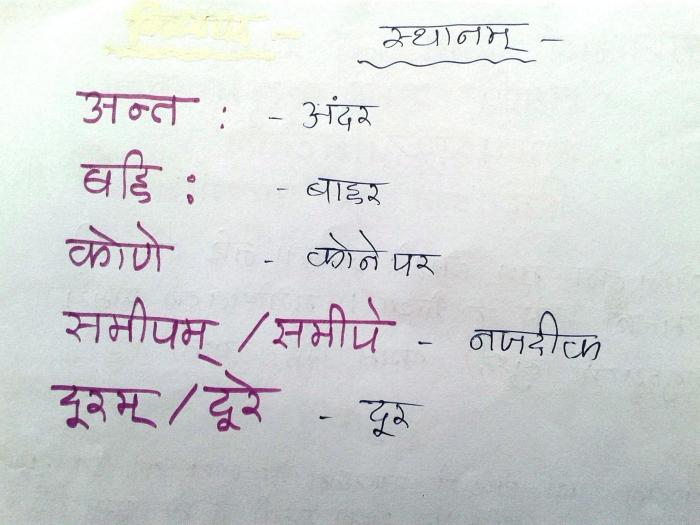 स्थानम् -
अन्त : - अंदर
बहि : - बाहर
कोणे - कोने पर
समीपम् / समीपे - नजदीक
दूरम् / दूरे - दूर